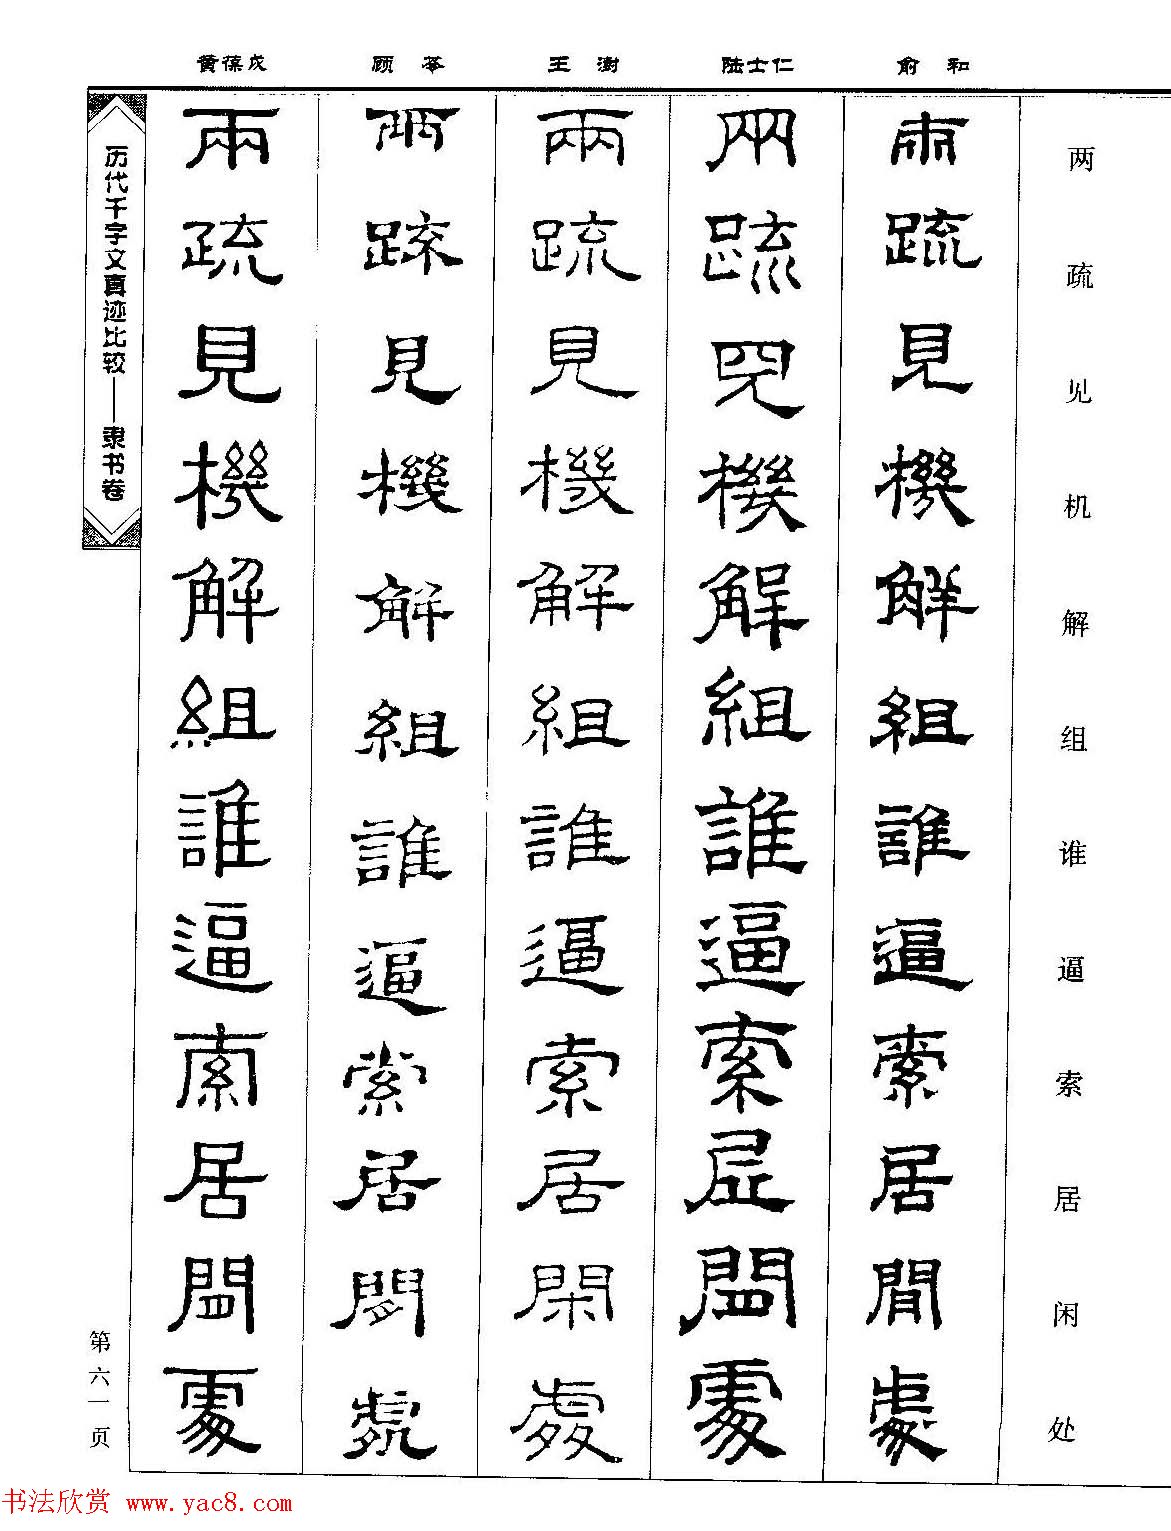 黄葆戉 顾苓 王澍 陆士仁 俞和
两疏见机解组谁逼索居闲处
兩疏見機解組誰逼索居閒處
兩疏見機解組誰逼索居閒處
兩疏見機解組誰逼索居閑處
兩疏見機解組誰逼索居閒處
兩疏見機解組誰逼索居閒處
历代千字文真迹比较——隶书卷
第六一页
书法欣赏 www.yac8.com